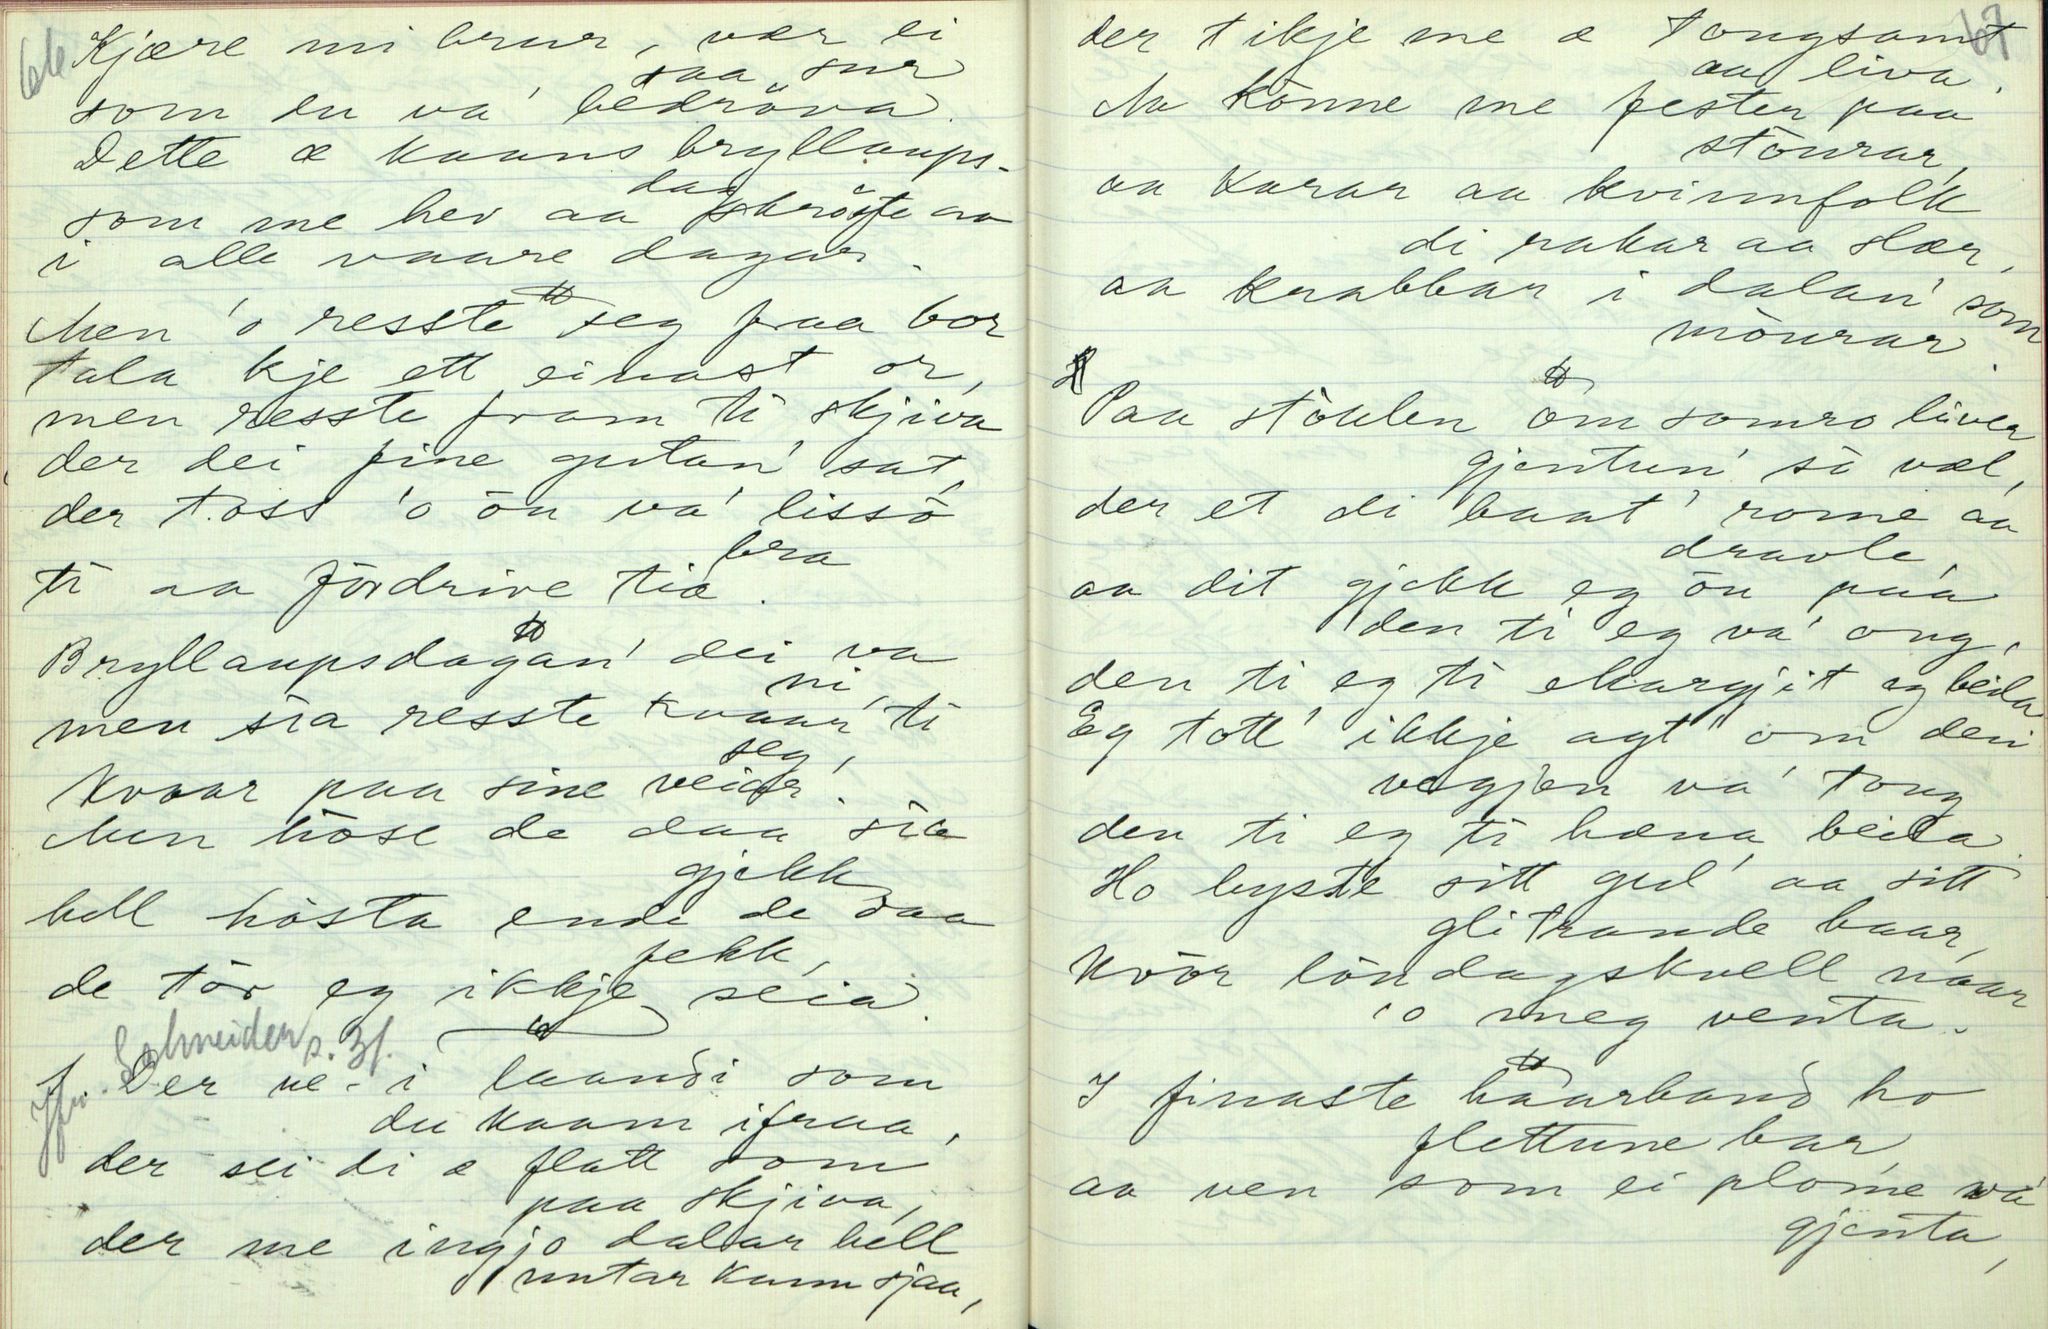 66
Kjære mi brur, vær ei
saa sur
som du va' bedröva.
Dette æ kaans bryllaups-
dag
som me hev aa skröfte aa
i alle vaare dagar.
Men 'o resste seg fraa bor
tala kje ett einast or,
men resste fram ti skjiva
der dei fine gutan' sat,
der toss 'o ön va' lissö
bra
ti aa fördrive tiæ.
Bryllaupsdagan' dei va
ni,
men sia resste kvaar' ti
seg,
kvaar paa sine veiar.
Men höse de daa sia
gjekk
hell hösta ende de daa
fekk,
de tör eg ikkje seia.
Jfr. Schneider s. 31.
Der ne- i laandi som
du kaam ifraa,
der sei di æ flatt som
paa skjiva,
der me ingjo dalar hell
nutar kunn sjaa,
67
der tikje me æ tongsamt
aa liva.
Nu könne me fester paa
stöurar,
aa karar aa kvinnfolk
di rakar aa slær,
aa krabbar i dalan' som
möurar.
Paa stöulen öm somro liiver
gjentun' sö væl,
der et di baat' rome aa
dravle,
aa dit gjekk eg ön paa
den ti eg va' ong,
den ti eg ti Margjit eg beila
Eg tott' ikkje agt om den
vegjen va' tong
den ti eg ti hæna beila.
Ho lyste sitt gul' aa sitt
glitrande haar,
kvör löndagskvell naar
'o meg venta.
I finaste haarband ho
flettune bar,
aa ven som ei plome va'
gjenta,